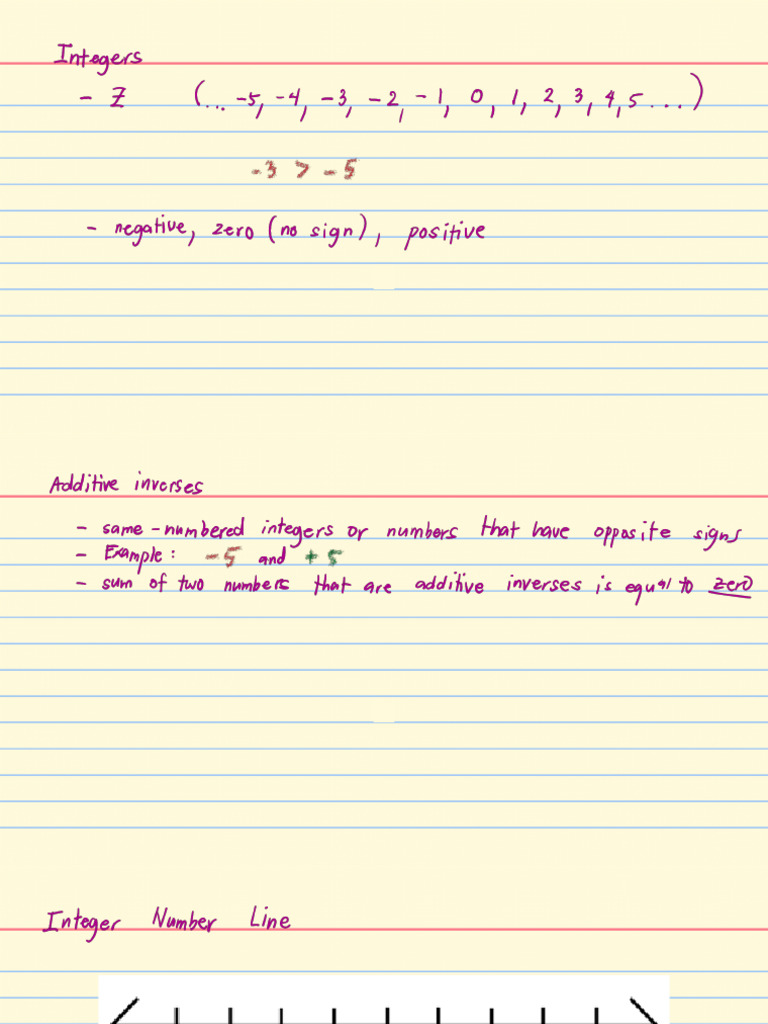 Integers
- Z (... -5, -4, -3, -2, -1, 0, 1, 2, 3, 4, 5 ...)
-3 > -5
- negative, zero (no sign), positive
Additive inverses
- same-numbered integers or numbers that have opposite signs
- Example: -5 and +5
- sum of two numbers that are additive inverses is equal to zero
Integer Number Line